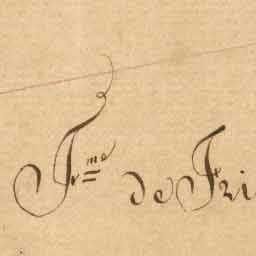 Frme de Fri